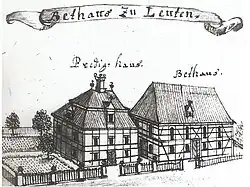 Bethaus zu Leuten.
Predig. haus.
Bethaus.